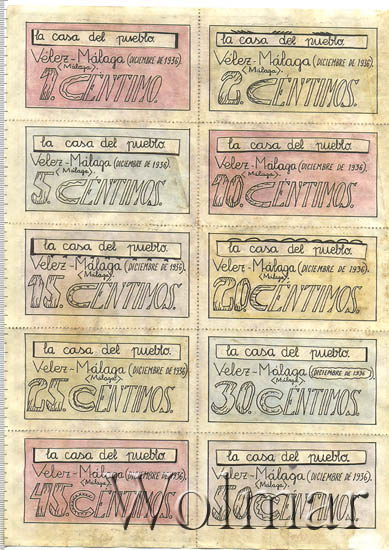 la casa del pueblo.
Vélez-Málaga (DICIEMBRE DE 1936).
(Málaga).
1. CÉNTIMO.
la casa del pueblo.
Vélez-Málaga (DICIEMBRE DE 1936).
(Málaga).
2. CÉNTIMOS.
la casa del pueblo.
Velez-Málaga (DICIEMBRE DE 1936).
(Málaga).
5. CÉNTIMOS.
la casa del pueblo.
Velez-Málaga (DICIEMBRE DE 1936).
(Málaga).
10. CÉNTIMOS.
la casa del pueblo.
Velez-Málaga (DICIEMBRE DE 1936).
(Málaga).
15. CÉNTIMOS.
la casa del pueblo.
Velez-Málaga (DICIEMBRE DE 1936).
(Málaga).
20. CÉNTIMOS.
la casa del pueblo.
Velez-Málaga (DICIEMBRE DE 1936).
(Málaga).
25. CÉNTIMOS.
la casa del pueblo.
Velez-Málaga (DICIEMBRE DE 1936).
(Málaga).
30. CÉNTIMOS.
la casa del pueblo.
Velez-Málaga (DICIEMBRE DE 1936).
(Málaga).
45. CÉNTIMOS.
la casa del pueblo.
Velez-Málaga (DICIEMBRE DE 1936).
(Málaga).
50. CÉNTIMOS.
Wolmar